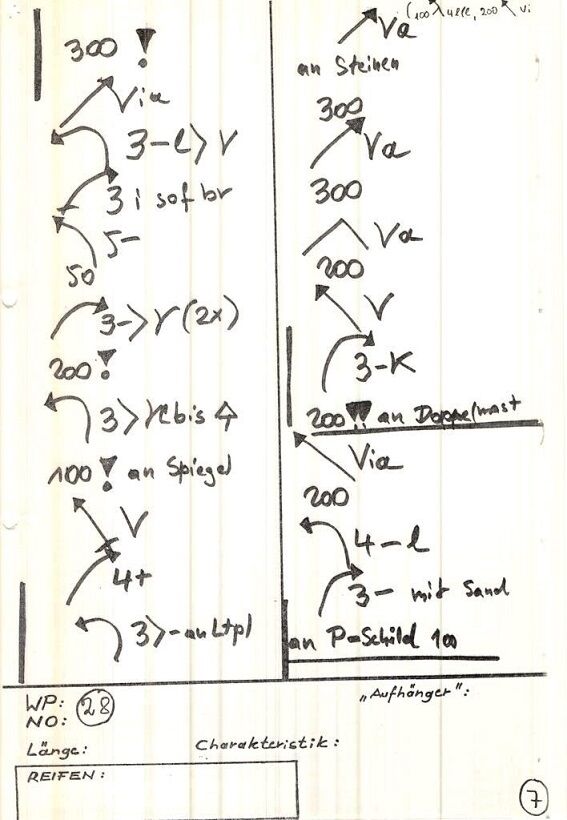 300 !
Via
3 - l > V
3 i sof br
5 -
50
3 - > r (2x)
200 !
3 > bis
100 ! an Spiegel
V
4 +
3 > - an Ltpl
(100 200 Vi
Va
an Steinen
300
Va
300
Va
200
V
3 - K
200 !! an Doppelmast
Via
200
4 - l
3 - mit Sand
an P-Schild 100
WP: 28
NO:
Länge:
Charakteristik:
"Aufhänger":
REIFEN:
7